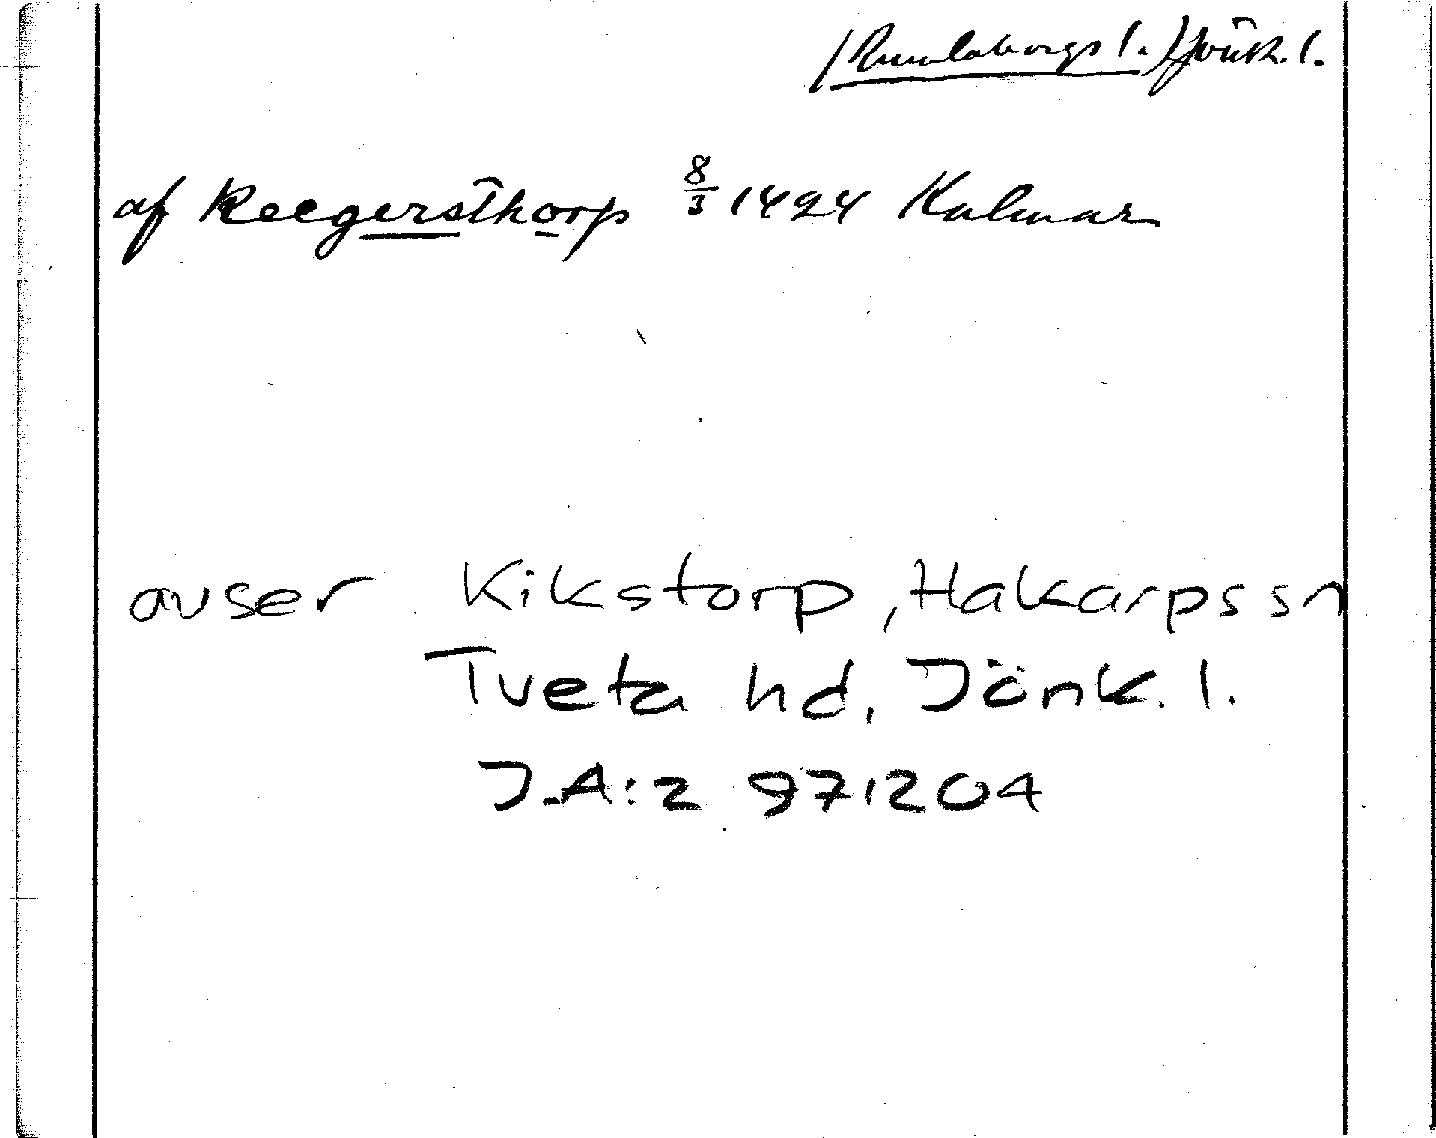 /Rumlaborgs l./ Jönk. l.
af Keegersthorp 8/3 1424 Kalmar
avser Kikstorp, Hakarps sn
Tveta hd, Jönk. l.
J.A:2 971204